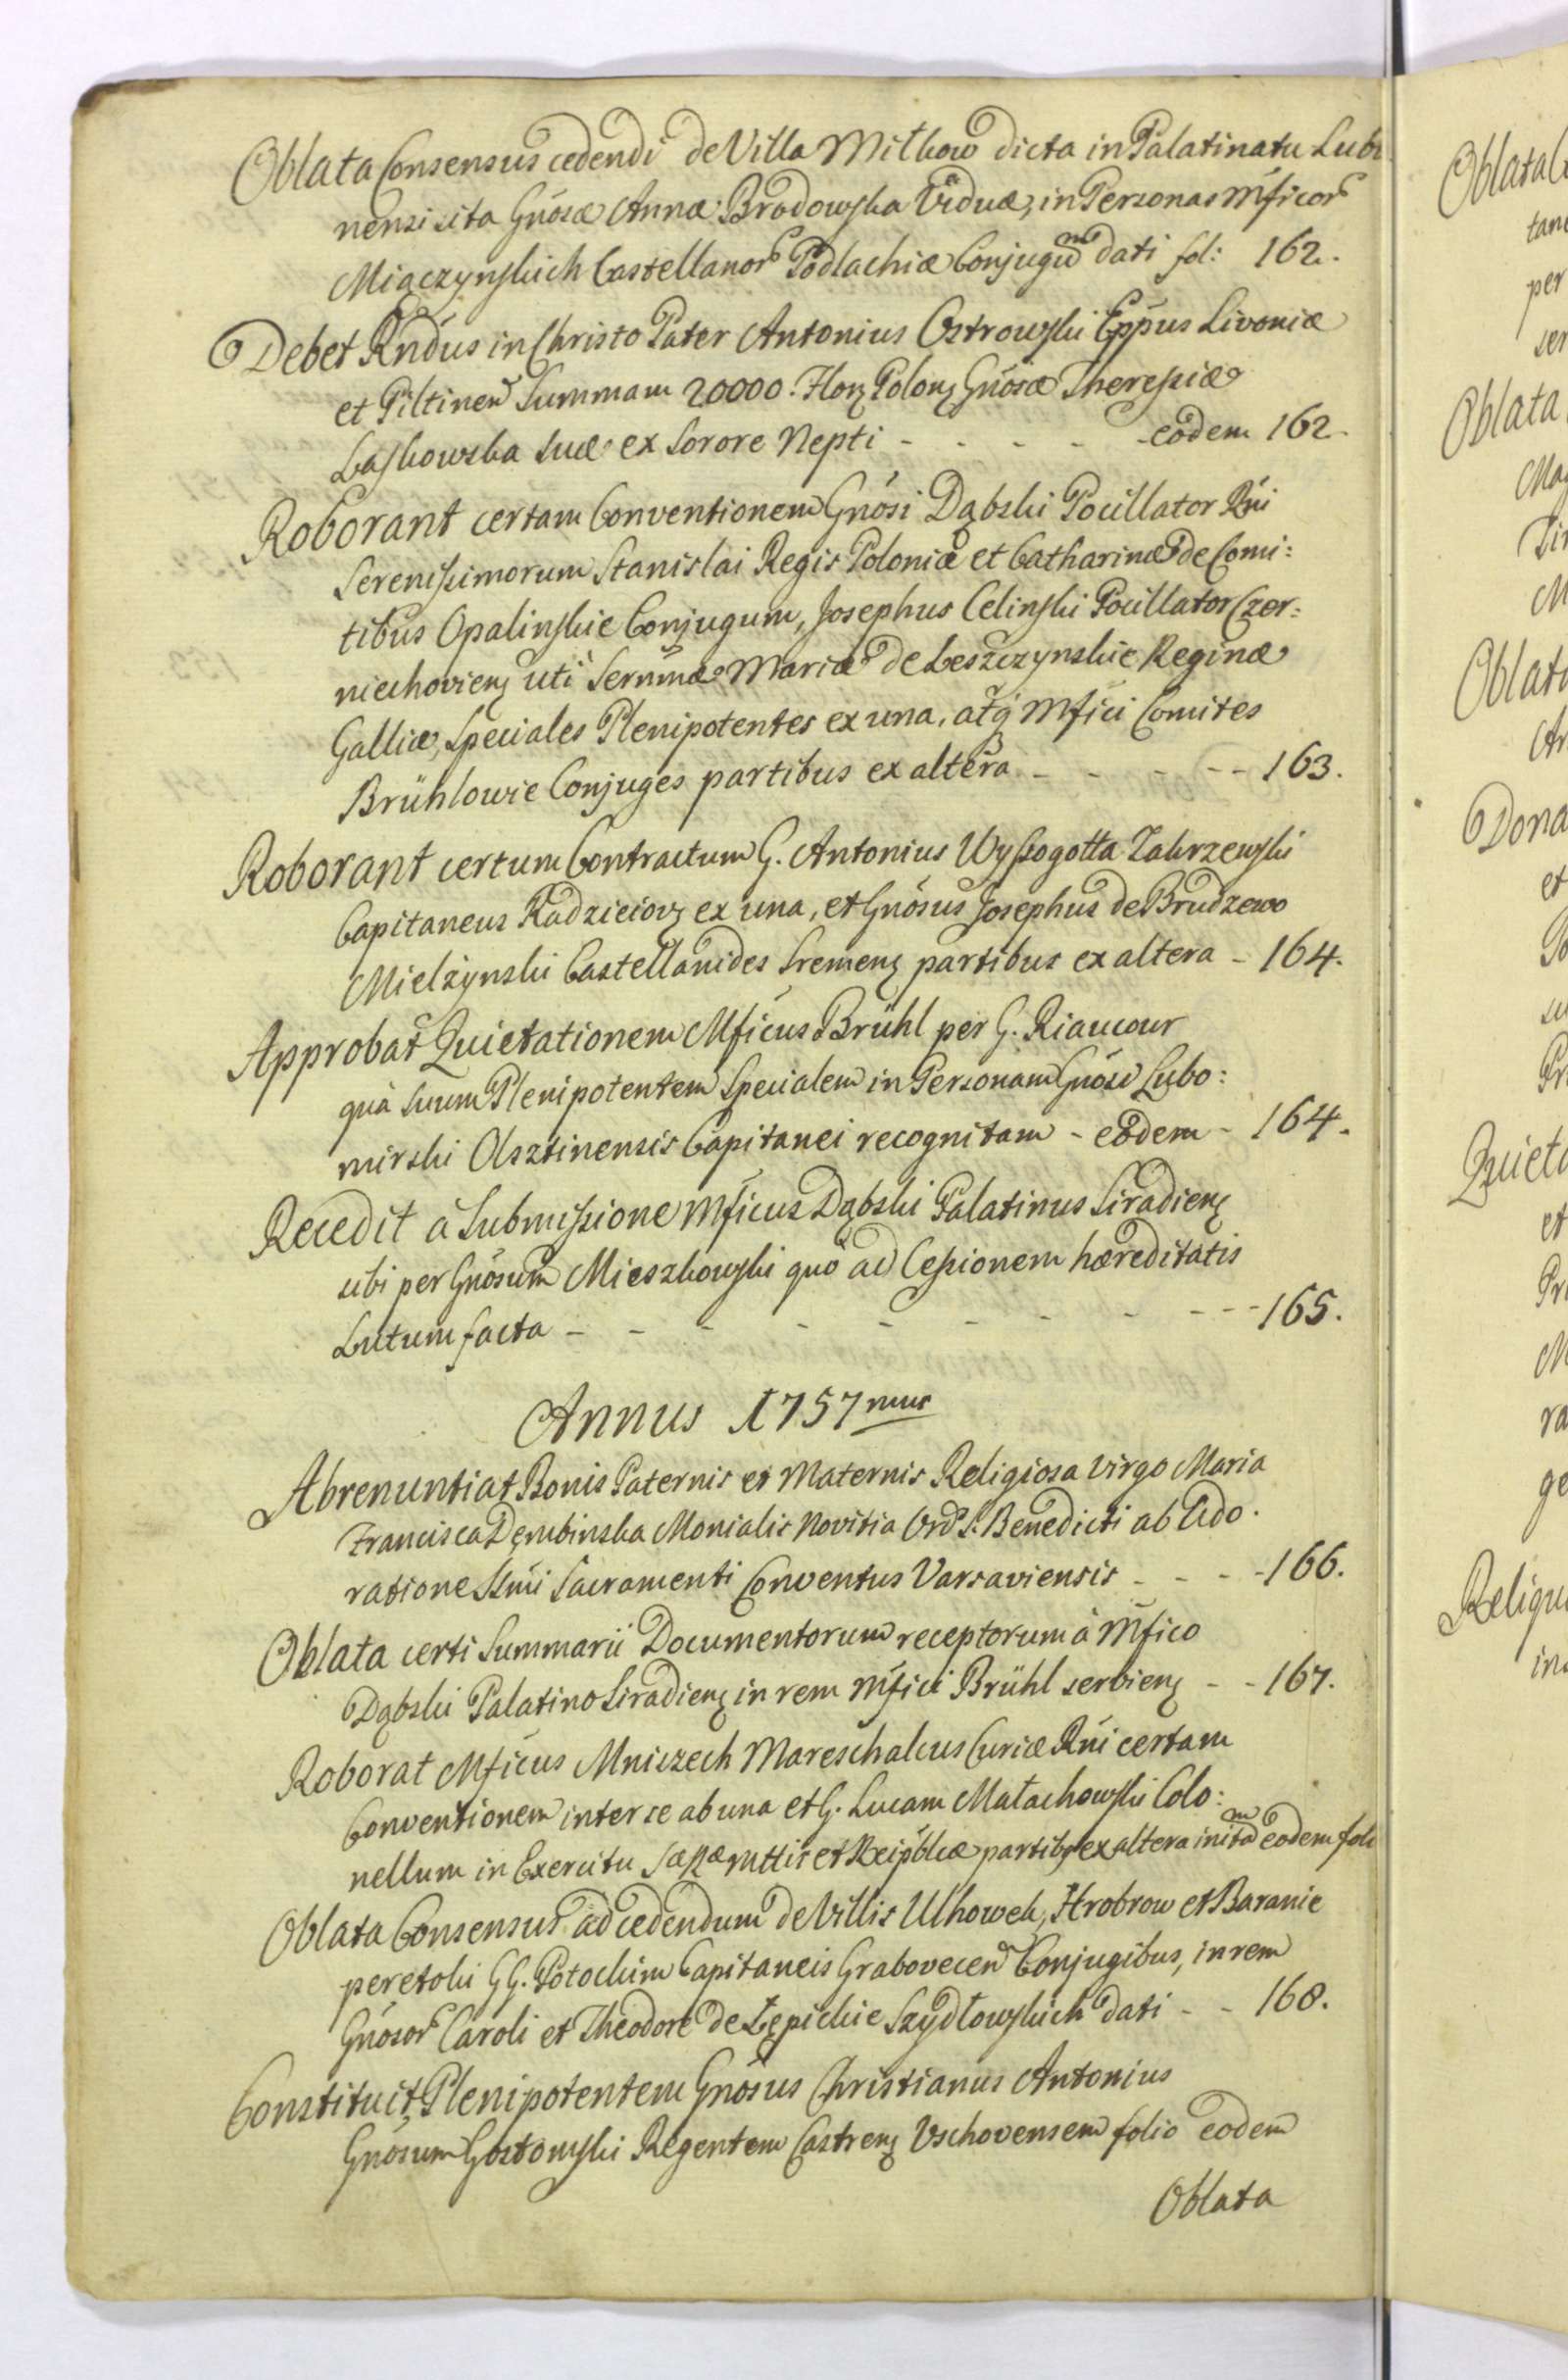 Oblata Consensus cedendi de Villa Mitkow dicta in Palatinatu Lubi
nensi sita Gnosæ Annæ Brodowska Viduæ, in Personas Mficor
Miączynskich Castellanor Podlachiæ Conjugum dati fol: 162.
Debet Rndus in Christo Pater Antonius Ostrowski Eppus Livoniæ
et Piltinen Summam 20000. Flor Polon Gnosæ Theresiæ
Laskowska suæ ex Sorore Nepti - - - - - eodem 162.
Roborant certam Conventionem Gnosi Dąbski Pocillator Rni
Serenissimorum Stanislai Regis Poloniæ et Catharinæ de Comi:
tibus Opalinskie Conjugum, Josephus Celinski Pocillator Czer:
niechovien uti Sermæ Mariæ de Leszczynskie Reginæ
Galliæ, Speciales Plenipotentes ex una, atq Mfici Comites
Brühlowie Conjuges partibus ex altera - - - - - 163.
Roborant certum Contractum G. Antonius Wyssogotta Zakrzewski
Capitaneus Radzieiov ex una, et Gnosus Josephus de Brudzewo
Mielżynski Castellanides Sremen partibus ex altera - 164.
Approbat Quietationem Mficus Brühl per G. Riaucour
quà suum Plenipotentem Specialem in Personam Gnosi Lubo:
mirski Olsztinensis Capitanei recognitam - eodem - 164.
Recedit à Submissione Mficus Dąbski Palatinus Siradien
sibi per Gnosum Mieszkowski quo ad Cessionem hæreditatis
Lutum facta - - - - - - - - - 165.
Annus 1757mus
Abrenuntiat Bonis Paternis et Maternis Religiosa Virgo Maria
Francisca Dęmbinska Monialis Novitia Ord S. Benedicti ab Ado.
ratione SSmi Sacramenti Conventus Varsaviensis - - - - 166.
Oblata certi Summarii Documentorum receptorum à Mfico
Dąbski Palatino Siradien in rem Mfici Brühl servien - - 167.
Roborat Mficus Mniszech Mareschalcus Curiæ Rni certam
Conventionem inter se ab una et G. Lucam Małachowski Colo:
nellum in Exercitu SæRæ Mttis et Reipblicæ partibs ex altera initam eodem foli
Oblata Consensus ad cedendum de Villis Uhowek, Hrobrow et Baranie
peretoki GG. Potockim Capitaneis Grabovecen Conjugibus, in rem
Gnosor Caroli et Theodore de Łępickie Szydłowskich dati - - 168.
Constituit Plenipotentem Gnosus Christianus Antonius
Gnosum Gostomski Regentem Castren Vschovensem folio eodem
Oblata
Oblata
tan
per
ser
Oblata
Ma
M
Oblat
Ar
Dona
et
su
Pr
Quiet
et
Pr
M
ra
ge
Reliqu
in